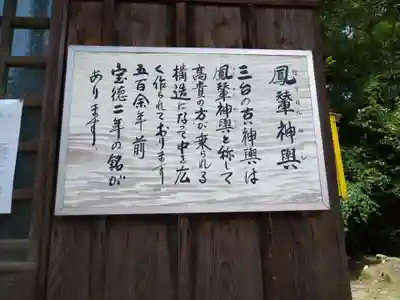 鳳輦神輿
三台の古い神輿は
鳳輦神輿と称して
高貴の方が乗られる
構造になって中を広
く作られております
五百余年前
宝徳二年の銘が
あります。